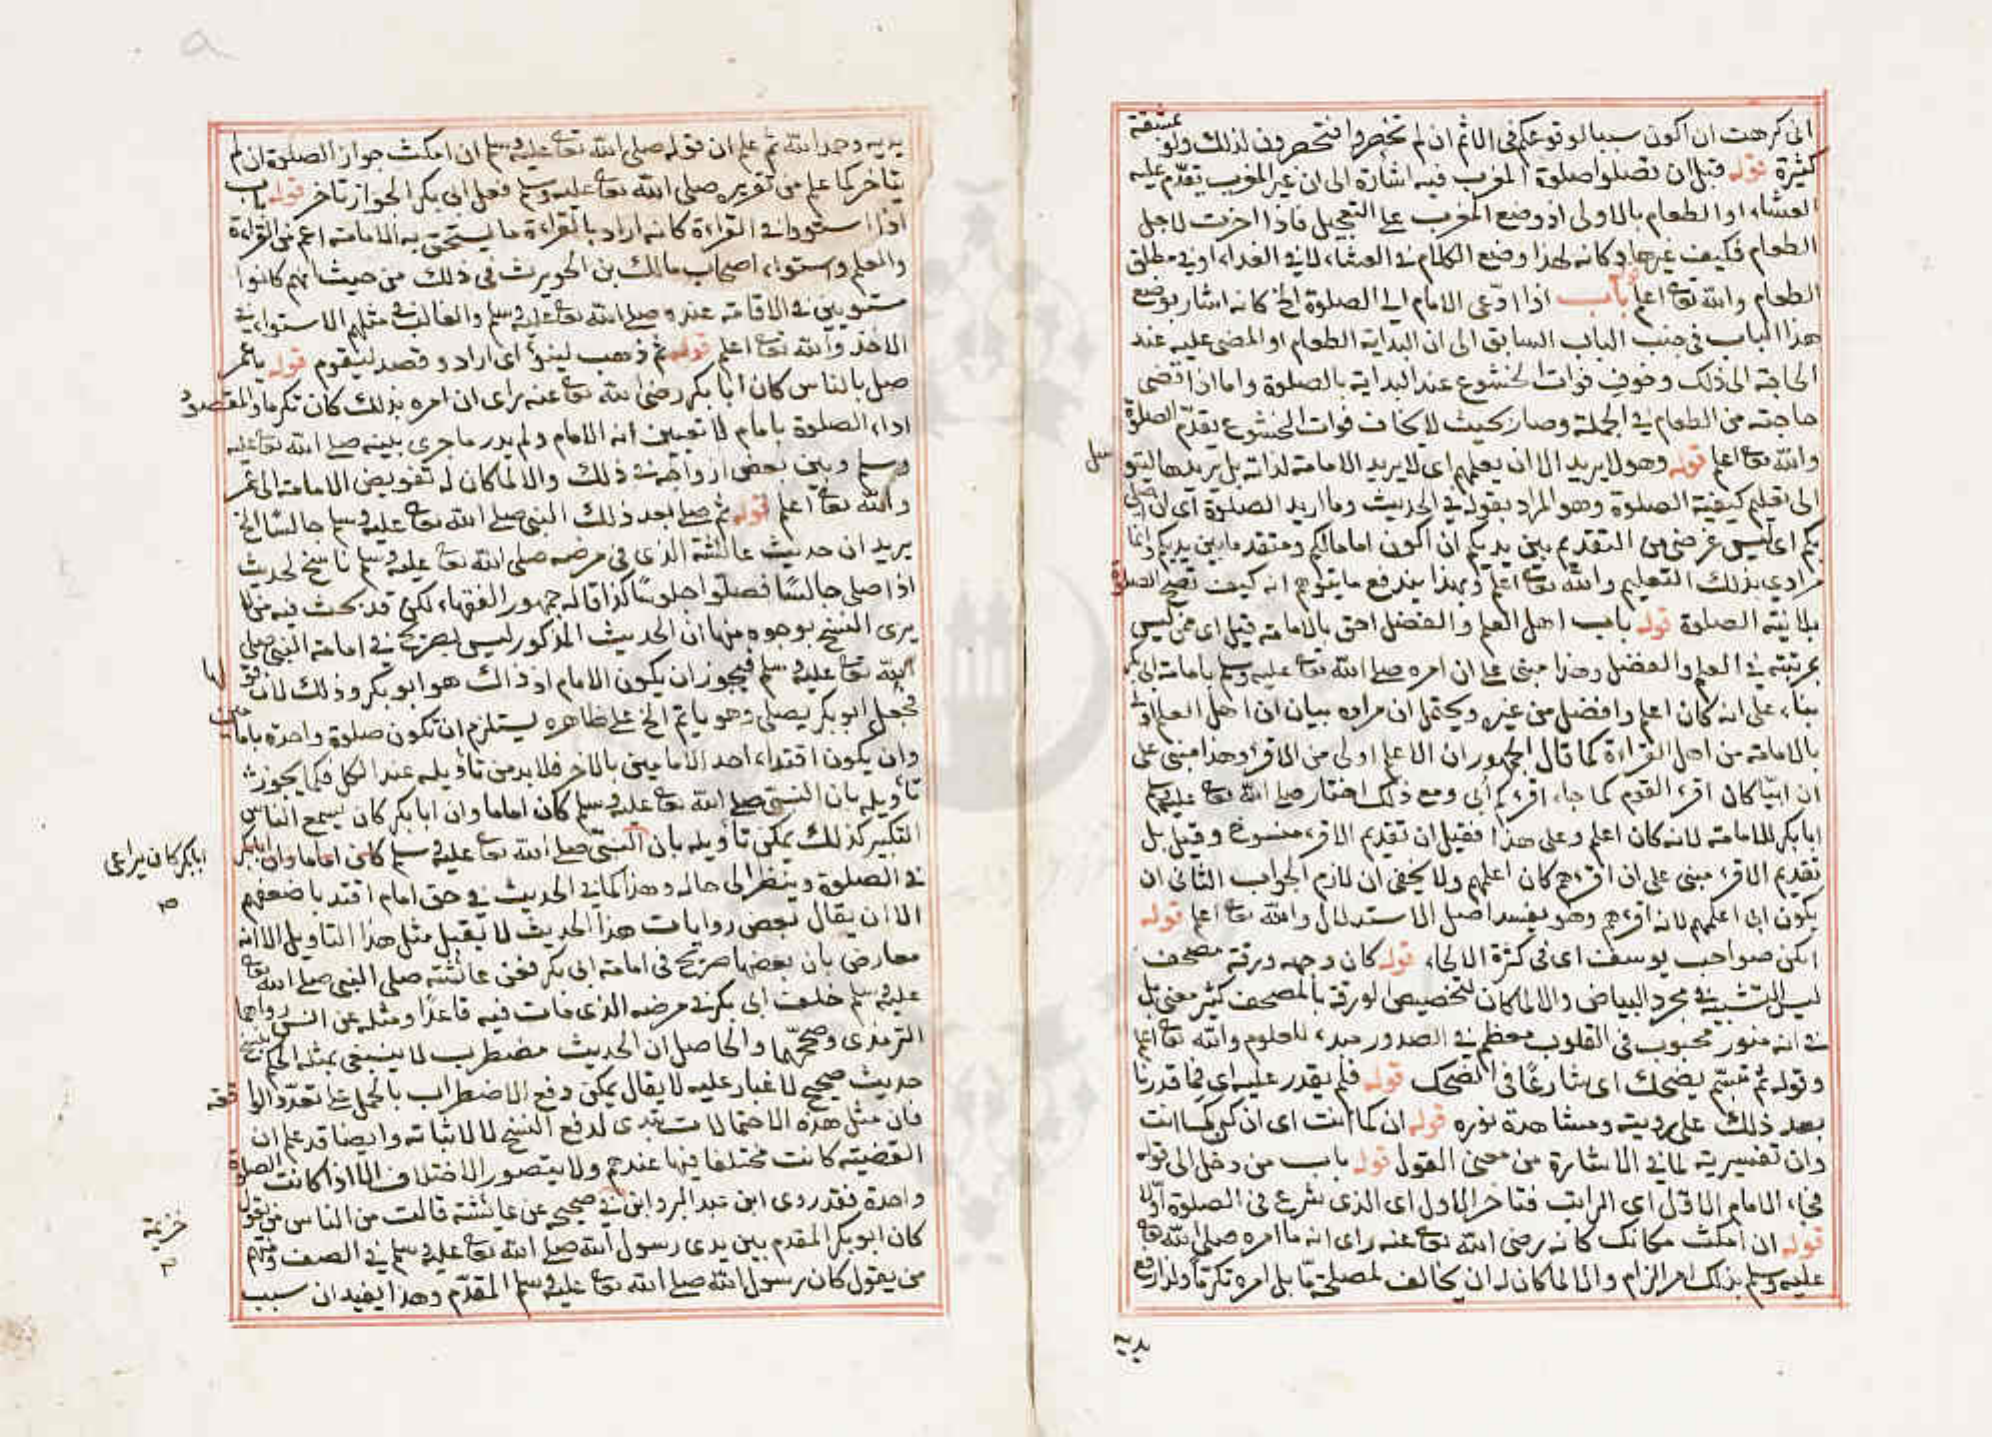 اني كرهت ان اكون سببا لوقوعكم في الاثم ان لم تحضروا فتحضرون لذلك ولو بمشقة
كثيرة قوله قبل ان تصلوا صلوة المغرب فيه اشارة الى ان غير المغرب يتقدم عليه
العشاء او الطعام بالاولى اذ وضع المغرب على التعجيل فاذا اخرت لاجل
الطعام فكيف غيرها وكانه لهذا وضع الكلام في العشاء لا في الغداء او في مطلق
الطعام والله تعا اعلم قوله باب اذا دعى الامام الى الصلوة الخ كانه اشار بوضع
هذا الباب في جنب الباب السابق الى ان البداية الطعام او المضى عليه عند
الحاجة الى ذلك وخوف فوات الخشوع عند البداية بالصلوة واما اذا قضى
حاجته من الطعام في الجملة وصار بحيث لا يخاف فوات الخشوع يقدم الصلوة
والله تعا اعلم قوله وهو لا يريد الا ان يعلمهم اى لا يريد الامامة لذاته بل يريدها ليتوسل
الى تعليم كيفية الصلوة وهو المراد بقوله في الحديث وما اريد الصلوة اى لان اصلى
بكم اى ليس غرضى من التقديم بين يديكم ان اكون اماما لكم ومتقدما بين يديكم وانما
مرادى بذلك التعليم والله تعا اعلم وبهذا يندفع ما يتوهم انه كيف تصح الصلوة
بلا نية الصلوة قوله باب اهل العلم والفضل احق بالامامة قيل اى ممن ليس
بمرتبته في العلم والفضل وهذا مبنى على ان امره صلى الله تعا عليه وسلم بامامة ابى بكر
بناء على انه كان اعلم وافضل من غيره ويحتمل ان مراده بيان ان اهل العلم اولى
بالامامة من اهل القراءة كما قال الجمهور ان الاعلم اولى من الاقرء وهذا مبنى على
ان ابيّا كان اقرء القوم كما جاء اقرءكم أبى ومع ذلك اختار صلى الله تعا عليه وسلم
ابا بكر للامامة لانه كان اعلم وعلى هذا فقيل ان تقديم الاقرء منسوخ وقيل بل
تقديم الاقرء مبنى على ان اقرءهم كان اعلمهم ولا يخفى ان لازم الجواب الثانى ان
يكون ابى اعلمهم لانه اقرءهم وهو يفسد اصل الاستدلال والله تعا اعلم قوله
انكن صواحب يوسف اى فى كثرة الالحاء قوله كان وجهه ورقة مصحف
ليس التشبيه في مجرد البياض والا لما كان لتخصيص الورقة بالمصحف كثير معنى بل
في انه منور محبوب فى القلوب معظم في الصدور مبدء للعلوم والله تعا اعلم
وقوله ثم تبسم يضحك اى شارعا فى الضحك قوله فلم يقدر عليه اى فما قدرنا
بعد ذلك على رويته ومشاهدة نوره قوله ان كما انت اى ان كن كما انت
وان تفسيرية لما في الاشارة من معنى القول قوله باب من دخل الى قوله
فجاء الامام الاول اى الراتب فتاخر الاول اى الذى شرع فى الصلوة اوّلا
قوله ان امكث مكانك كانه رضى الله تعا عنه راى انه ما امره صلى الله تعا
عليه وسلم بذلك امر الزام والا لما كان له ان يخالف لمصلحة ما بل امره تكرما ولذا رفع
يديه
يديه وحمد الله ثم علم ان قوله صلى الله تعا عليه وسلم ان امكث جواز الصلوة ان لم
يتاخر كما علم من تقريره صلى الله تعا عليه وسلم فعل ابى بكر الجواز تاخر قوله باب
اذا استووا في القراءة كانه اراد بالقراءة ما يستحق به الامامة اعم من القراءة
والعلم واستواء اصحاب مالك بن الحويرث فى ذلك من حيث انهم كانوا
مستويين في الاقامة عنده صلى الله تعا عليه وسلم والغالب في مثلهم الاستواء في
الاخذ والله تعا اعلم قوله ثم ذهب لينوء اى اراد وقصد ليقوم قوله يا عمر
صل بالناس كان ابا بكر رضى الله تعا عنه راى ان امره بذلك كان تكرما والمقصود
اداء الصلوة بامام لا تعيين انه الامام ولم يدر ما جرى بينه صلى الله تعا عليه
وسلم وبين بعض ازواجه في ذلك والا لما كان له تفويض الامامة الى عمر
والله تعا اعلم قوله ثم صلى بعد ذلك النبي صلى الله تعا عليه وسلم جالسًا الخ
يريد ان حديث عائشة الذى فى مرضه صلى الله تعا عليه وسلم ناسخ لحديث
اذا صلى جالسًا فصلوا جلوسًا كذا قاله جمهور الفقهاء لكن قد بحث فيه من لا
يرى النسخ بوجوه منها ان الحديث المذكور ليس بصريح في امامة النبى صلى
الله تعا عليه وسلم فيجوز ان يكون الامام اذ ذاك هو ابو بكر وذلك لان قولها
فجعل ابو بكر يصلى وهو ياتم الخ على ظاهره يستلزم ان تكون صلوة واحدة بامامين
وان يكون اقتداء احد الامامين بالاخر فلا بد من تأويله عند الكل فكما يجوز
تأويله بان النبى صلى الله تعا عليه وسلم كان اماما وان ابا بكر كان يسمع الناس
التكبير كذلك يمكن تأويله بان النبى صلى الله تعا عليه وسلم كان اماما وان ابا بكر
ابا بكر كان يراعى
صح
في الصلوة وينظر الى حاله وهذا كما في الحديث في حق امام اقتد باضعفهم
الا ان يقال بعض روايات هذا الحديث لا يقبل مثل هذا التاويل الا انه
معارض بان بعضها صريح فى امامة ابى بكر فعن عائشة صلى النبى صلى الله تعا
عليه وسلم خلف ابى بكر في مرضه الذى مات فيه قاعدًا ومثله عن انس رواهما
الترمذى وصححهما والحاصل ان الحديث مضطرب لا ينبغى بمثله الحكم
حديث صحيح لا غبار عليه لا يقال يمكن دفع الاضطراب بالحمل على تعدد الواقعة
فان مثل هذه الاحتمالات تبدى لدفع النسخ لا لاثباته وايضا قد علم ان
القضية كانت مختلفا فيها عندهم ولا يتصور الاختلاف الا اذا كانت الصلوة
واحدة فقد روى ابن عبد البر وابن في صحيحه عن عائشة قالت من الناس من يقول
خزيمة
كان ابو بكر المقدم بين يدى رسول الله صلى الله تعا عليه وسلم في الصف ومنهم
من يقول كان رسول الله صلى الله تعا عليه وسلم المقدم وهذا يفيد ان سبب